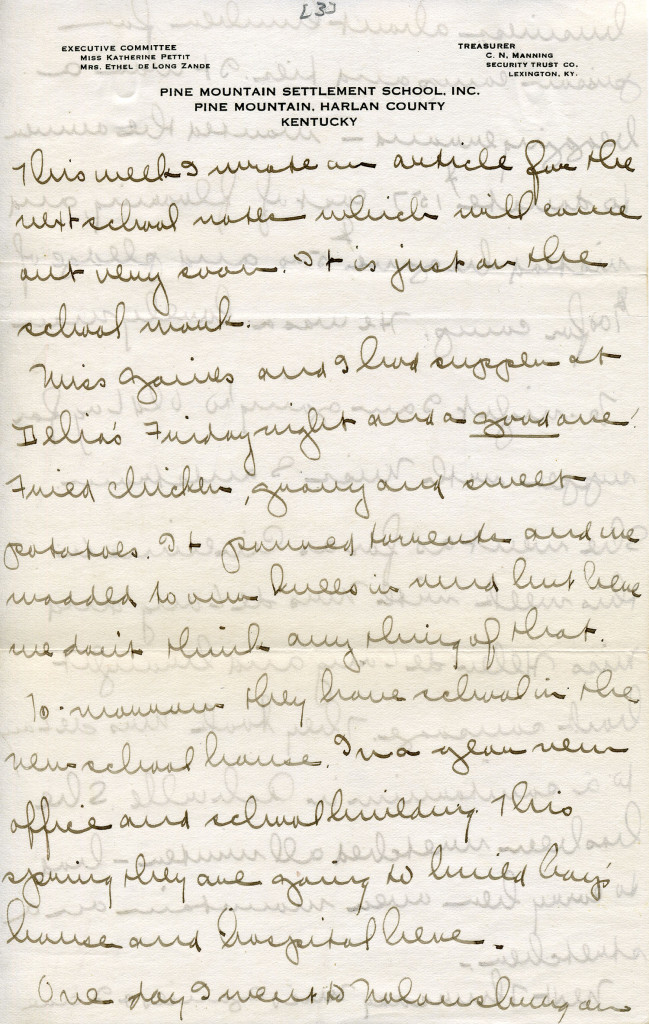 [3]
EXECUTIVE COMMITTEE
MISS KATHERINE PETTIT
MRS. ETHEL DE LONG ZANDE
TREASURER
C. N. MANNING
SECURITY TRUST CO.
LEXINGTON, KY.
PINE MOUNTAIN SETTLEMENT SCHOOL, INC.
PINE MOUNTAIN, HARLAN COUNTY
KENTUCKY
This week I wrote an article for the
next school notes which will come
out very soon. It is just on the
school work.
Miss Gaines and I had supper at
Delia's Friday night and a good one!
Fried chicken, gravy and sweet
potatoes. It poured torrents and we
waaded to our knees in mud but here
we don't think any thing of that.
To-morrow they have school in the
new school house. In a year new
office and school building. This
spring they are going to build boys'
house and hospital here.
One day I went to Nolansburg on